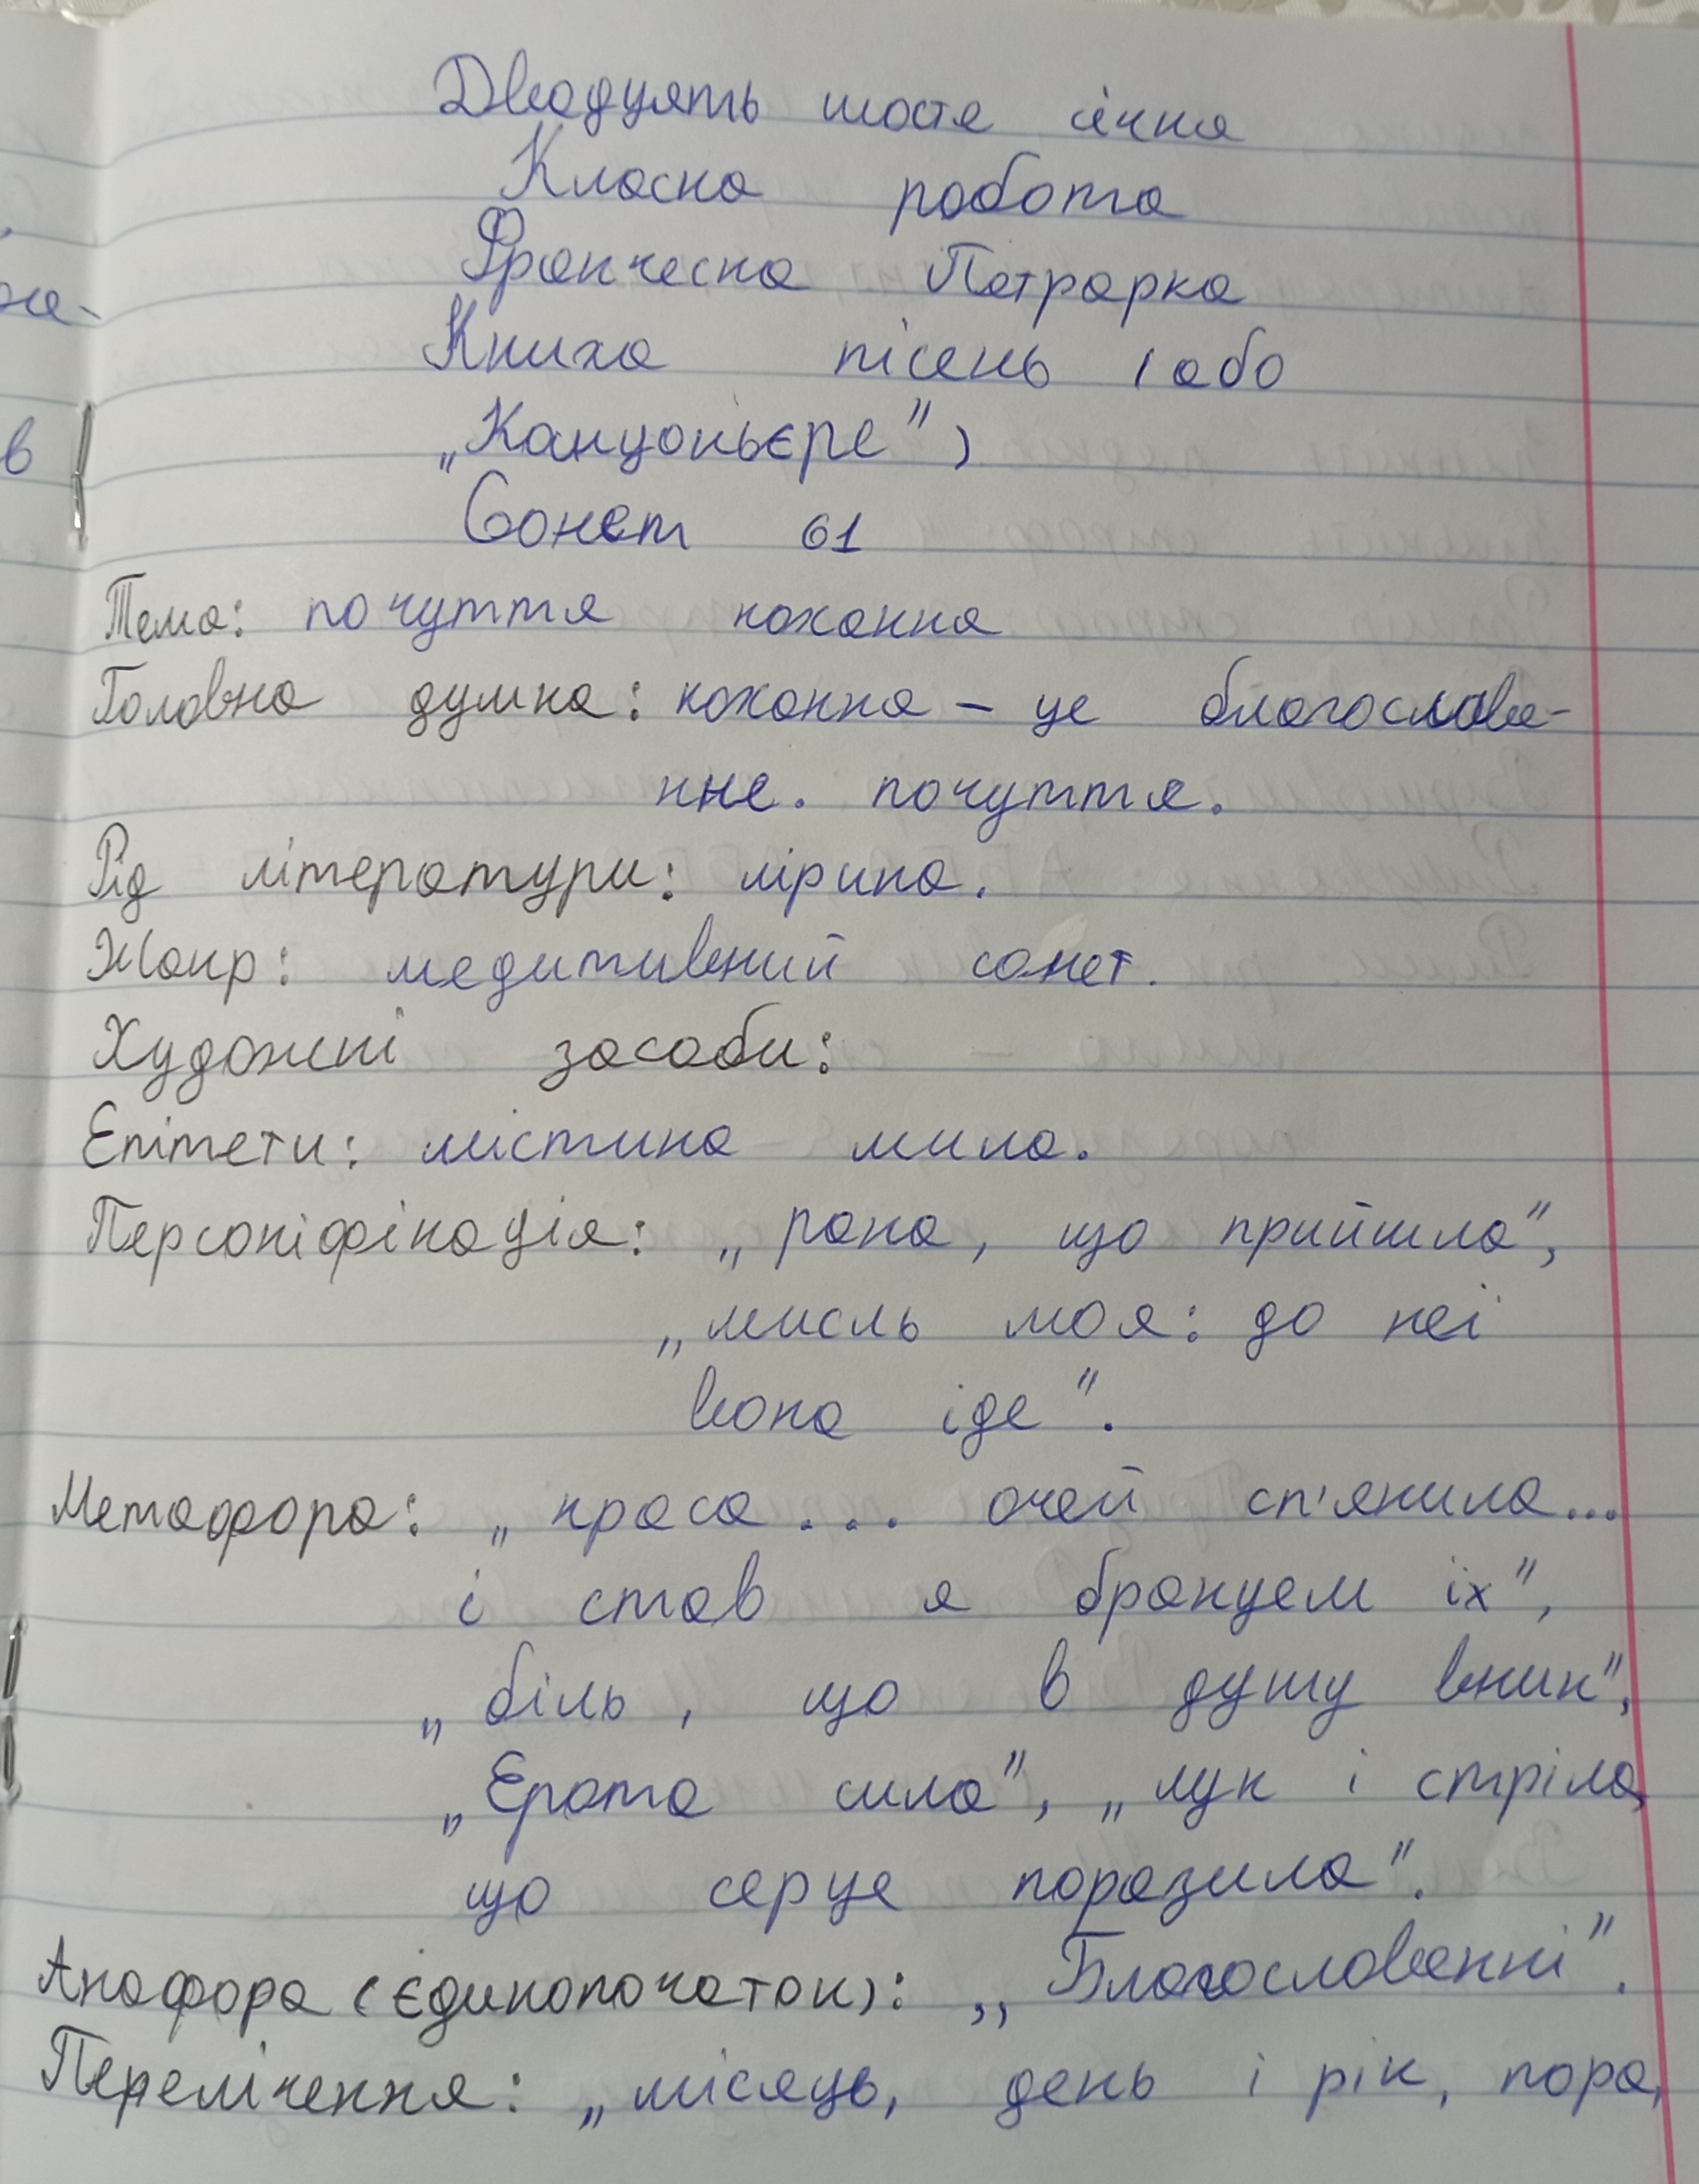 Двадцять шосте січня
Класна робота
Франческо Петрарка
Книга пісень (або
„Канцоньєре")
Сонет 61
Тема: почуття кохання
Головна думка: кохання – це благослове-
нне. почуття.
Рід літератури: лірика.
Жанр: медитивний сонет.
Художні засоби:
Епітети: містина мила.
Персоніфікація: „рана, що прийшла",
„мисль моя: до неї
вона іде".
Метафора: „краса... очей сп'янила...
і став я бранцем їх",
„біль, що в душу вник",
„Ерота сила", „лук і стріла,
що серце поразила".
Анафора (єдинопочаток): „Благословенні".
Перелічення: „місяць, день і рік, пора,
в